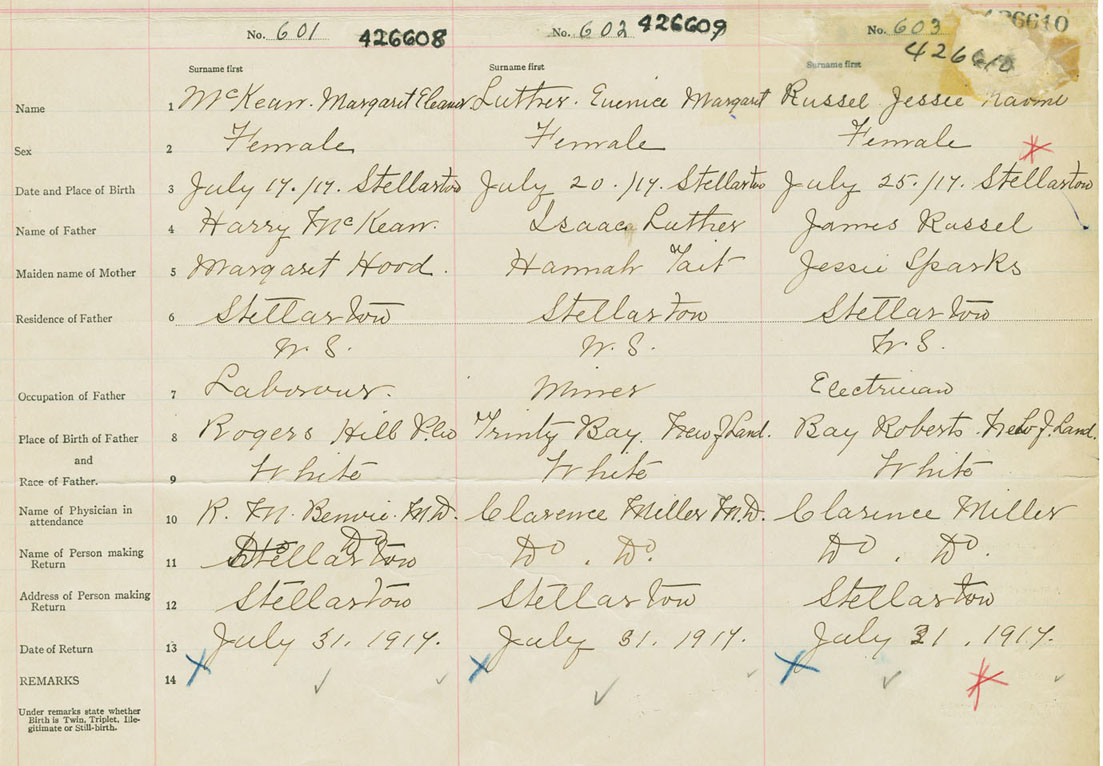 No. 601 426608 No. 602 426609 No. 603 426610
426610
Surname first Surname first Surname first
Name 1 McKean. Margaret Eleanor Luther. Eunice Margaret Russel Jessie Naomi
Sex 2 Female Female Female
Date and Place of Birth 3 July 17./17. Stellarton July 20./17. Stellarton July 25./17. Stellarton
Name of Father 4 Harry McKean. Isaac Luther James Russel
Maiden name of Mother 5 Margaret Hood. Hannah Tait Jessie Sparks
Residence of Father 6 Stellarton Stellarton Stellarton
N.S. N.S. N.S.
Occupation of Father 7 Labourer. Miner Electrician
Place of Birth of Father 8 Rogers Hill P.Co Trinty Bay. New f. Land. Bay Roberts. New f. Land.
and
Race of Father. 9 White White White
Name of Physician in
attendance 10 R. M. Benvie. M.D. Clarence Miller M.D. Clarence Miller
Name of Person making
Return 11 Stellarton Do Do Do . Do. Do . Do.
Address of Person making
Return 12 Stellarton Stellarton Stellarton
Date of Return 13 July 31. 1917. July 31. 1917. July 31. 1917.
REMARKS 14
Under remarks state whether
Birth is Twin, Triplet, Ille-
gitimate or Still-birth.